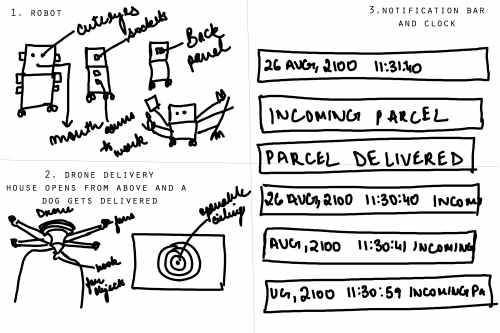 1. ROBOT
cute eyes
sockets
Back
panel
mouth
arms
to
work
2. DRONE DELIVERY
HOUSE OPENS FROM ABOVE AND A
DOG GETS DELIVERED
Drone
fans
hook
for
objects
openable
ceiling
3.NOTIFICATION BAR
AND CLOCK
26 AUG, 2100 11:31:40
INCOMING PARCEL
PARCEL DELIVERED
26 AUG, 2100 11:30:40 INCOM
AUG, 2100 11:30:41 INCOMING
UG, 2100 11:30:59 INCOMING PA